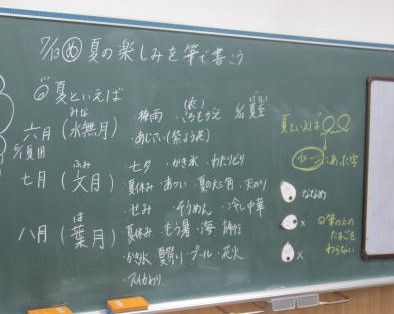 7/13 め 夏の楽しみを筆で書こう
夏といえば
六月(水無月) みな
梅雨 ころもがえ(衣) 夏至 げし
あじさい(紫陽花)
七月(文月) ふみ
七夕 ・かき氷 ・わたりどり
夏休み・あつい・夏の大三角・天の川
・せみ ・そうめん ・冷し中華
八月(葉月) は
夏休み ・もう暑 ・海 ・旅行
・かき氷 夏祭り・プール・花火
・スイカわり
夏といえば〇〇
イメージにあった字
ななめ
×
×
筆の上のたまごをわらない